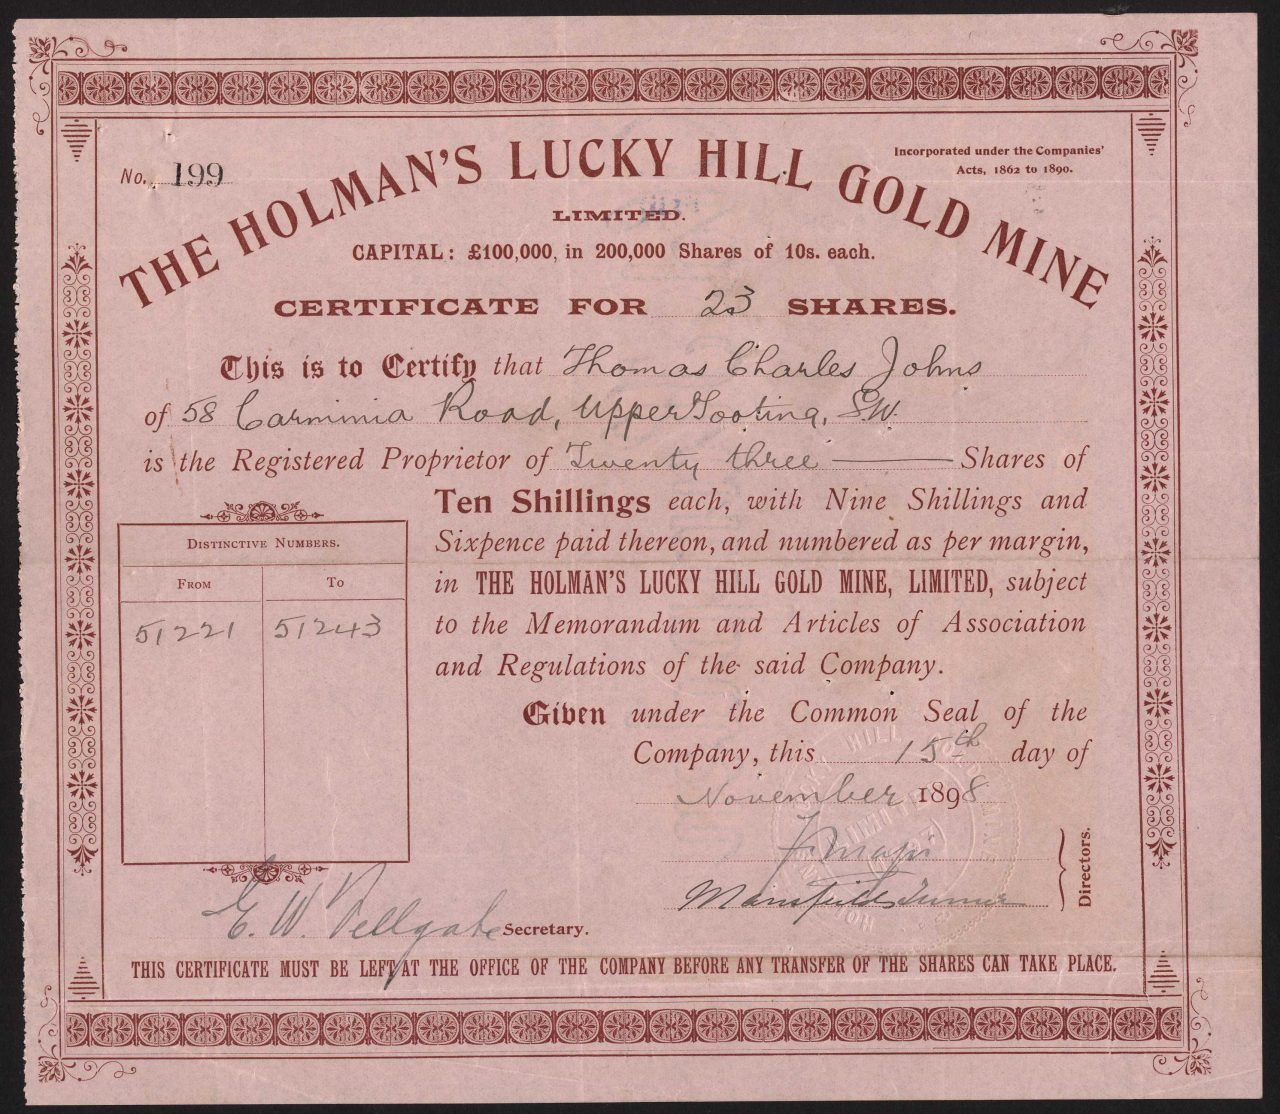 No. 199
Incorporated under the Companies'
Acts, 1862 to 1890.
THE HOLMAN'S LUCKY HILL GOLD MINE
LIMITED.
CAPITAL: £100,000, in 200,000 Shares of 10s. each.
CERTIFICATE FOR 23 SHARES.
This is to Certify that Thomas Charles Johns
of 58 Carminia Road, Upper Tooting, S.W.
is the Registered Proprietor of Twenty three Shares of
Ten Shillings each, with Nine Shillings and
Sixpence paid thereon, and numbered as per margin,
in THE HOLMAN'S LUCKY HILL GOLD MINE, LIMITED, subject
to the Memorandum and Articles of Association
and Regulations of the said Company.
DISTINCTIVE NUMBERS.
FROM TO
51221 51243
Given under the Common Seal of the
Company, this 15th day of
November 1898
Directors.
E. W. Secretary.
THIS CERTIFICATE MUST BE LEFT AT THE OFFICE OF THE COMPANY BEFORE ANY TRANSFER OF THE SHARES CAN TAKE PLACE.